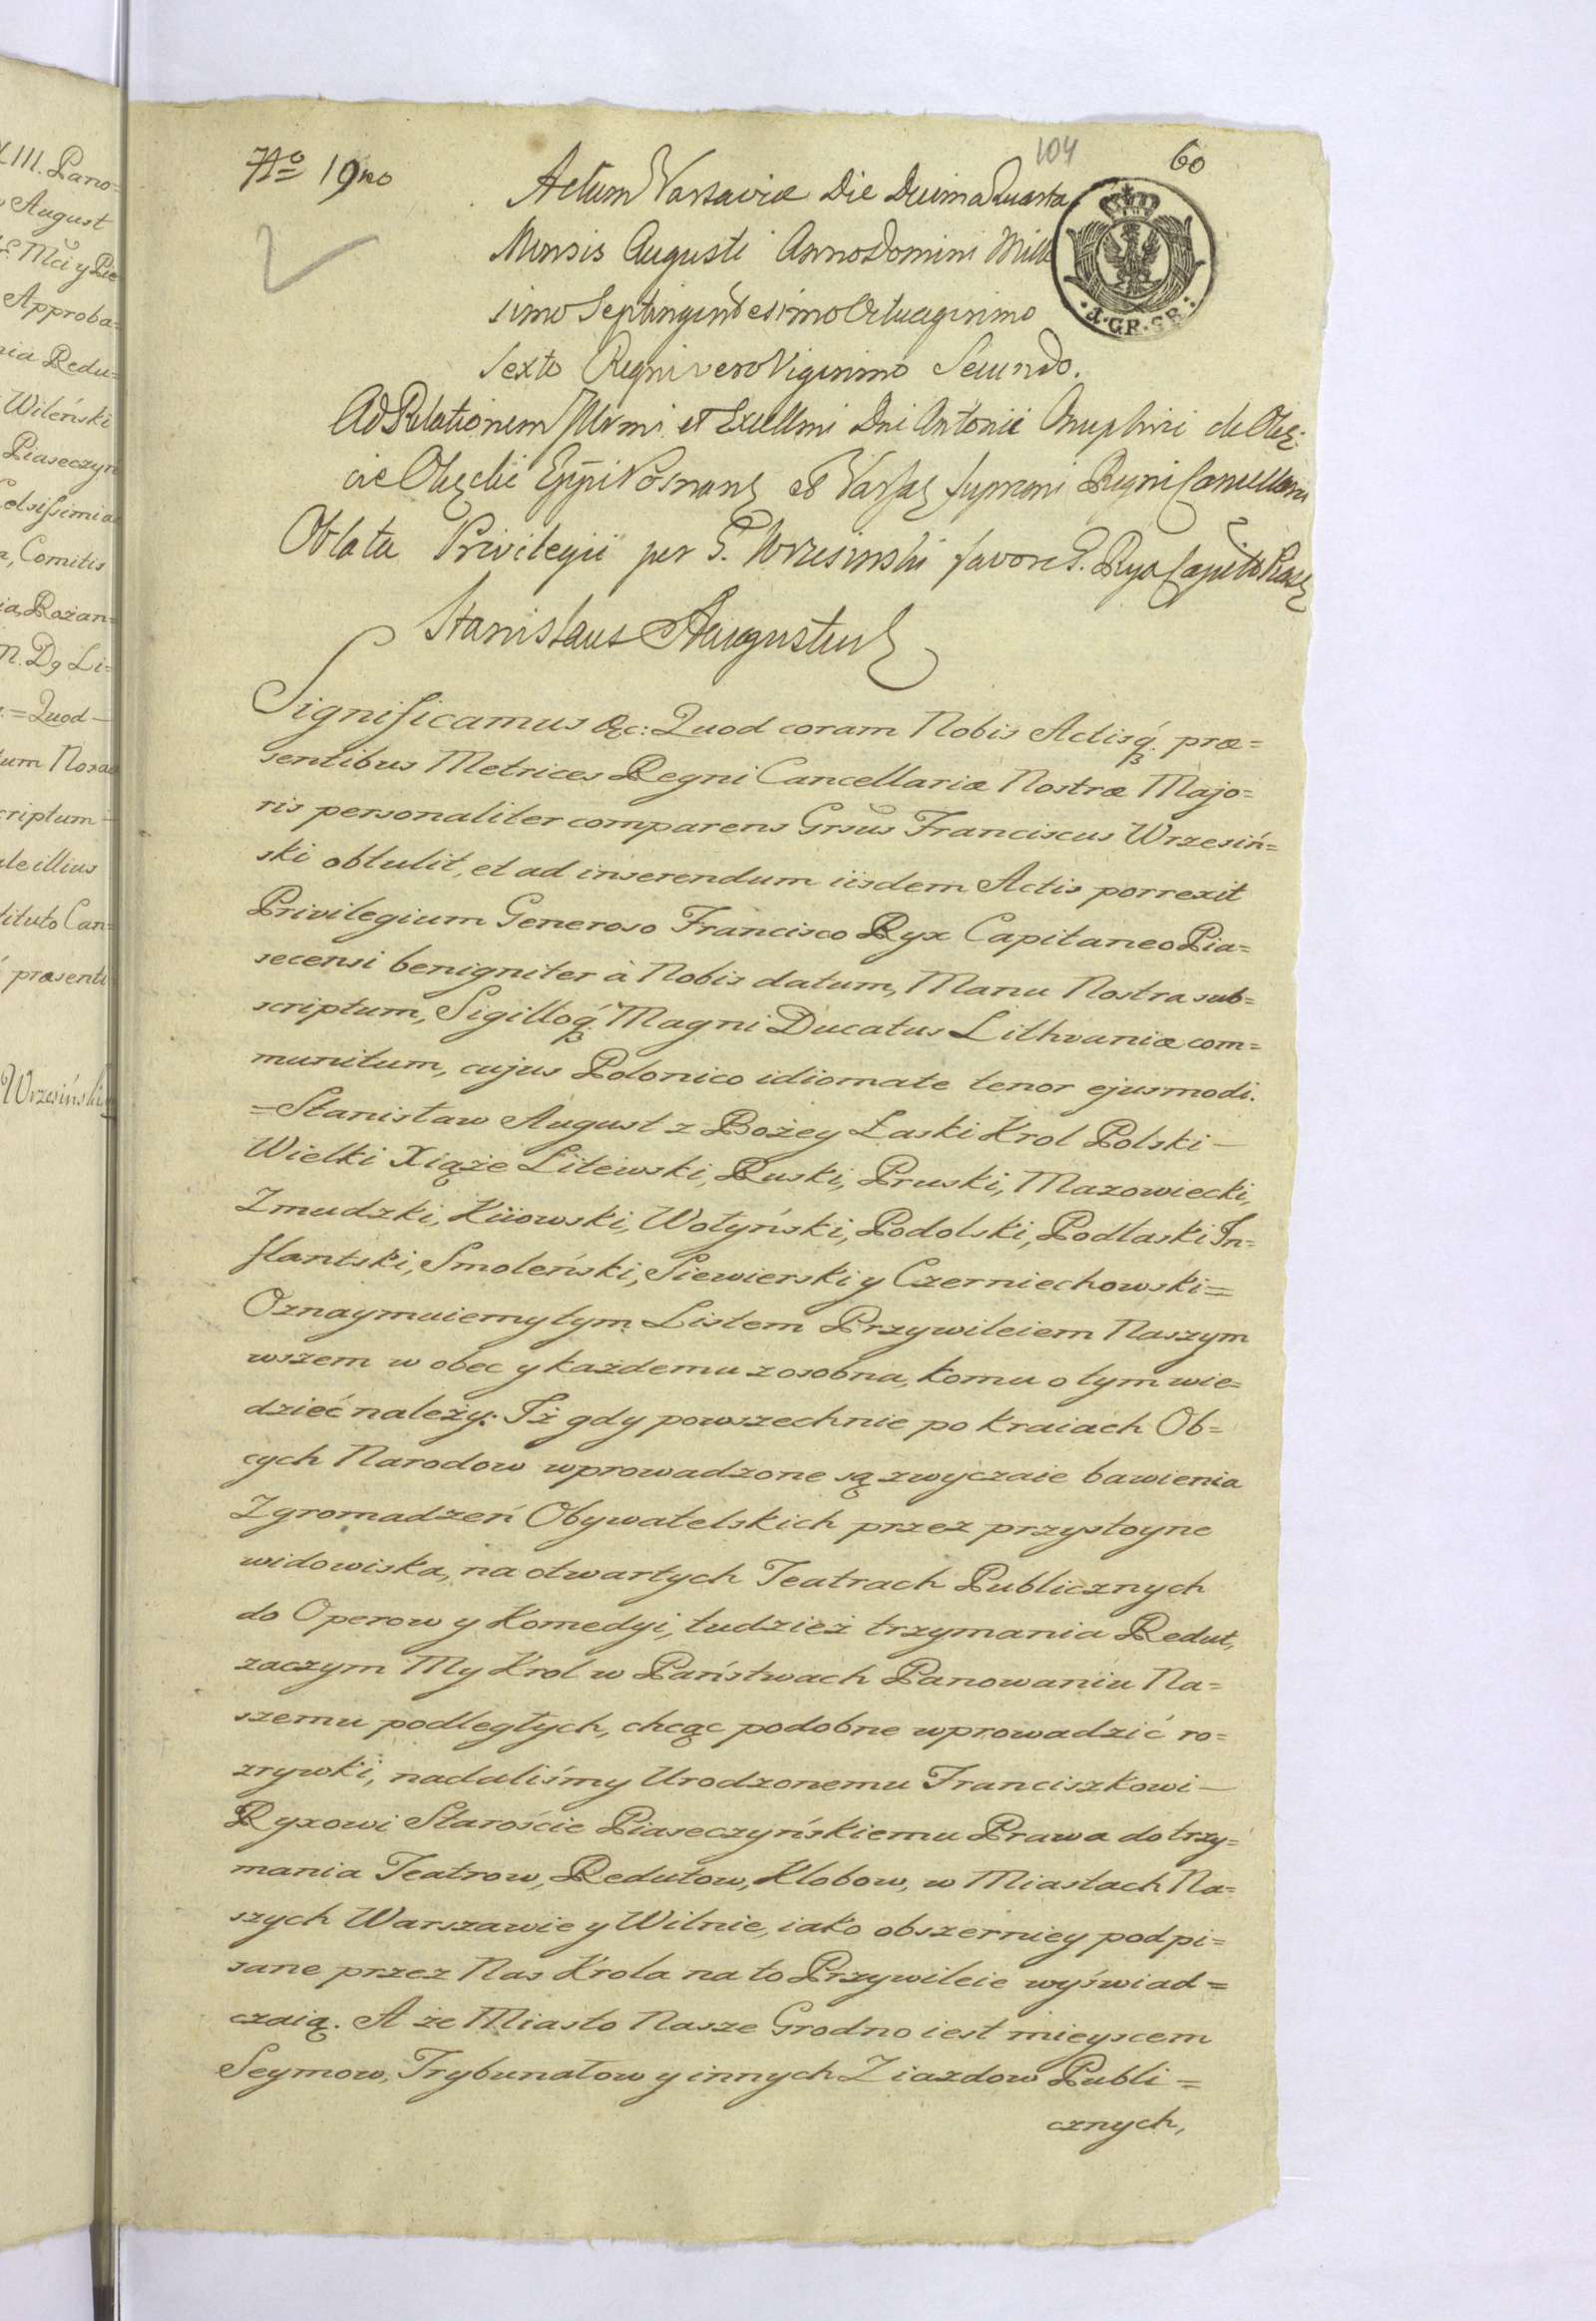 No 19no
104
60
Actum Varsaviæ Die Decima Quarta
Mensis Augusti Anno Domini Mille
simo Septingentesimo Octuagesimo
Sexto Regni vero Vigesimo Secundo.
4.GR.SR.
Ad Relationem Illrmi et Excellmi Dni Antonii Onuphrii de Okę-
cie Okęcki Eppi Posnanę et Varsaę Supremi Regni Cancellarii
Oblata Privilegii per G. Wrzesinski favore G. Ryx Capit
Stanislaus Augustus
Significamus &c: Quod coram Nobis Actisq́. præ=
sentibus Metrices Regni Cancellariæ Nostræ Majo=
ris personaliter comparens Grsus Franciscus Wrzesiń=
ski obtulit, et ad inserendum iisdem Actis porrexit
Privilegium Generoso Francisco Ryx Capitaneo Pia=
secensi benigniter à Nobis datum, Manu Nostra sub=
scriptum, Sigilloq́. Magni Ducatus Lithvaniæ com=
munitum, cujus Polonico idiomate tenor ejusmodi.
=Stanisław August z Bożey Łaski Krol Polski —
Wielki Xiąże Litewski, Ruski, Pruski, Mazowiecki,
Zmudzki, Kiiowski, Wołyński, Podolski, Podlaski In=
flantski, Smoleński, Siewierski y Czerniechowski=
Oznaymuiemy tym Listem Przywileiem Naszym
wszem w obec y każdemu zosobna, komu o tym wie=
dzieć należy: Iż gdy powszechnie po Kraiach Ob=
cych Narodow wprowadzone są zwyczaie bawienia
Zgromadzeń Obywatelskich przez przystoyne
widowiska, na otwartych Teatrach Publicznych
do Operow y Komedyi, tudzież trzymania Redut,
zaczym My Krol w Państwach Panowaniu Na=
szemu podległych, chcąc podobne wprowadzić ro=
zrywki, nadaliśmy Urodzonemu Franciszkowi —
Ryxowi Staroście Piaseczyńskiemu Prawa do trzy=
mania Teatrow, Redutow, Klobow, w Miastach Na=
szych Warszawie y Wilnie, iako obszerniey podpi=
sane przez Nas Krola na to Przywileie wyświad=
czaią. A że Miasto Nasze Grodno iest mieyscem
Seymow, Trybunałow y innych Ziazdow Publi=
cznych,